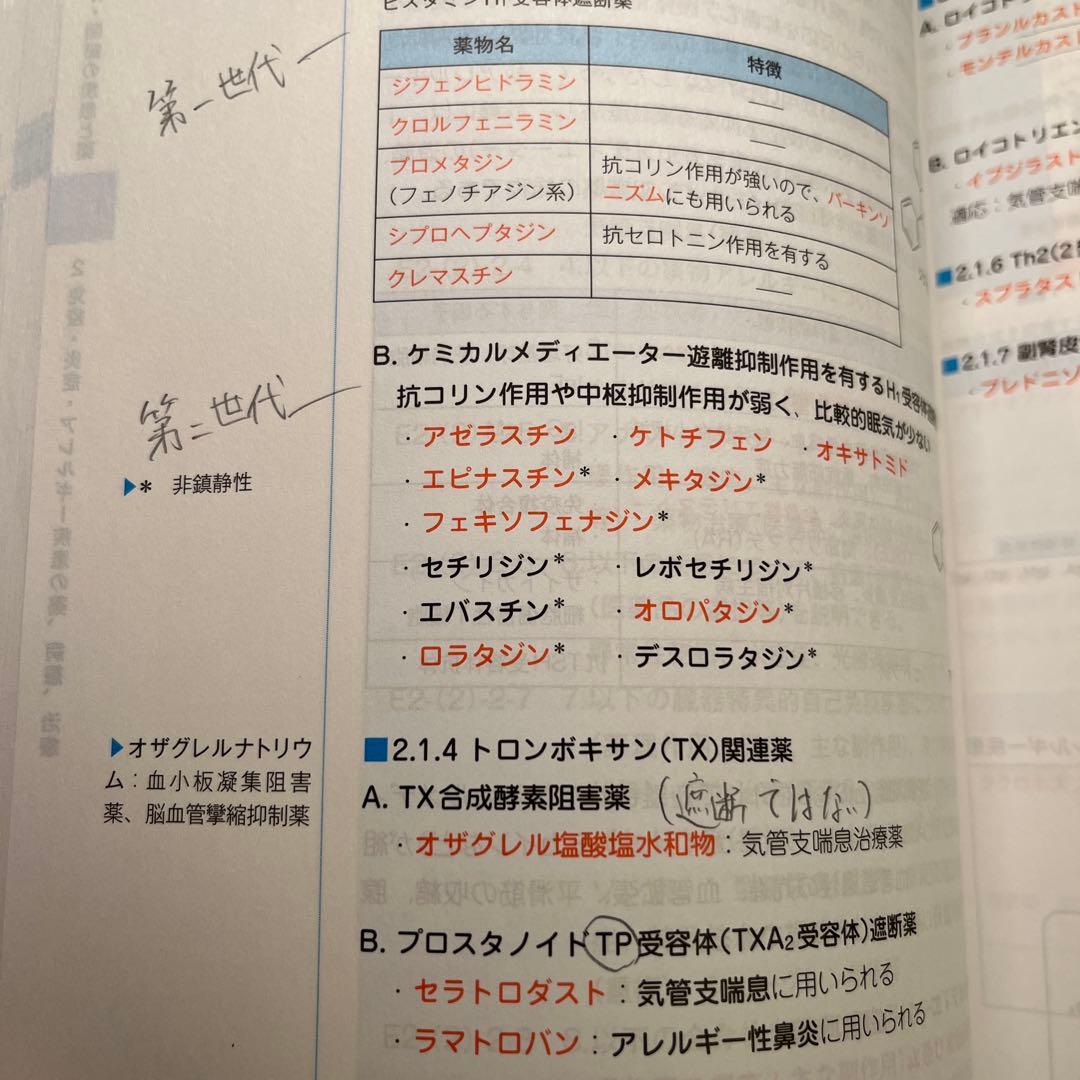 ヒスタミンH1受容体遮断薬
第一世代
薬物名 特徴
ジフェンヒドラミン ――
クロルフェニラミン ――
プロメタジン
(フェノチアジン系)
抗コリン作用が強いので、パーキンソ
ニズムにも用いられる
シプロヘプタジン 抗セロトニン作用を有する
クレマスチン ――
B. ケミカルメディエーター遊離抑制作用を有するH₁受容体
抗コリン作用や中枢抑制作用が弱く、比較的眠気が少ない
第二世代
・アゼラスチン ・ケトチフェン ・オキサトミド
・エピナスチン* ・メキタジン*
▶* 非鎮静性
・フェキソフェナジン*
・セチリジン* ・レボセチリジン*
・エバスチン* ・オロパタジン*
・ロラタジン* ・デスロラタジン*
■2.1.4 トロンボキサン(TX)関連薬
▶オザグレルナトリウ
ム:血小板凝集阻害
薬、脳血管攣縮抑制薬
A. TX合成酵素阻害薬 (遮断ではない)
・オザグレル塩酸塩水和物:気管支喘息治療薬
B. プロスタノイドTP受容体(TXA₂受容体)遮断薬
・セラトロダスト:気管支喘息に用いられる
・ラマトロバン:アレルギー性鼻炎に用いられる
A. ロイコト
・プランルカスト
・モンテルカスト
B. ロイコトリエン
・イブジラスト
適応:気管支喘
■2.1.6 Th2(2
・スプラタスト
■2.1.7 副腎皮
・プレドニゾ